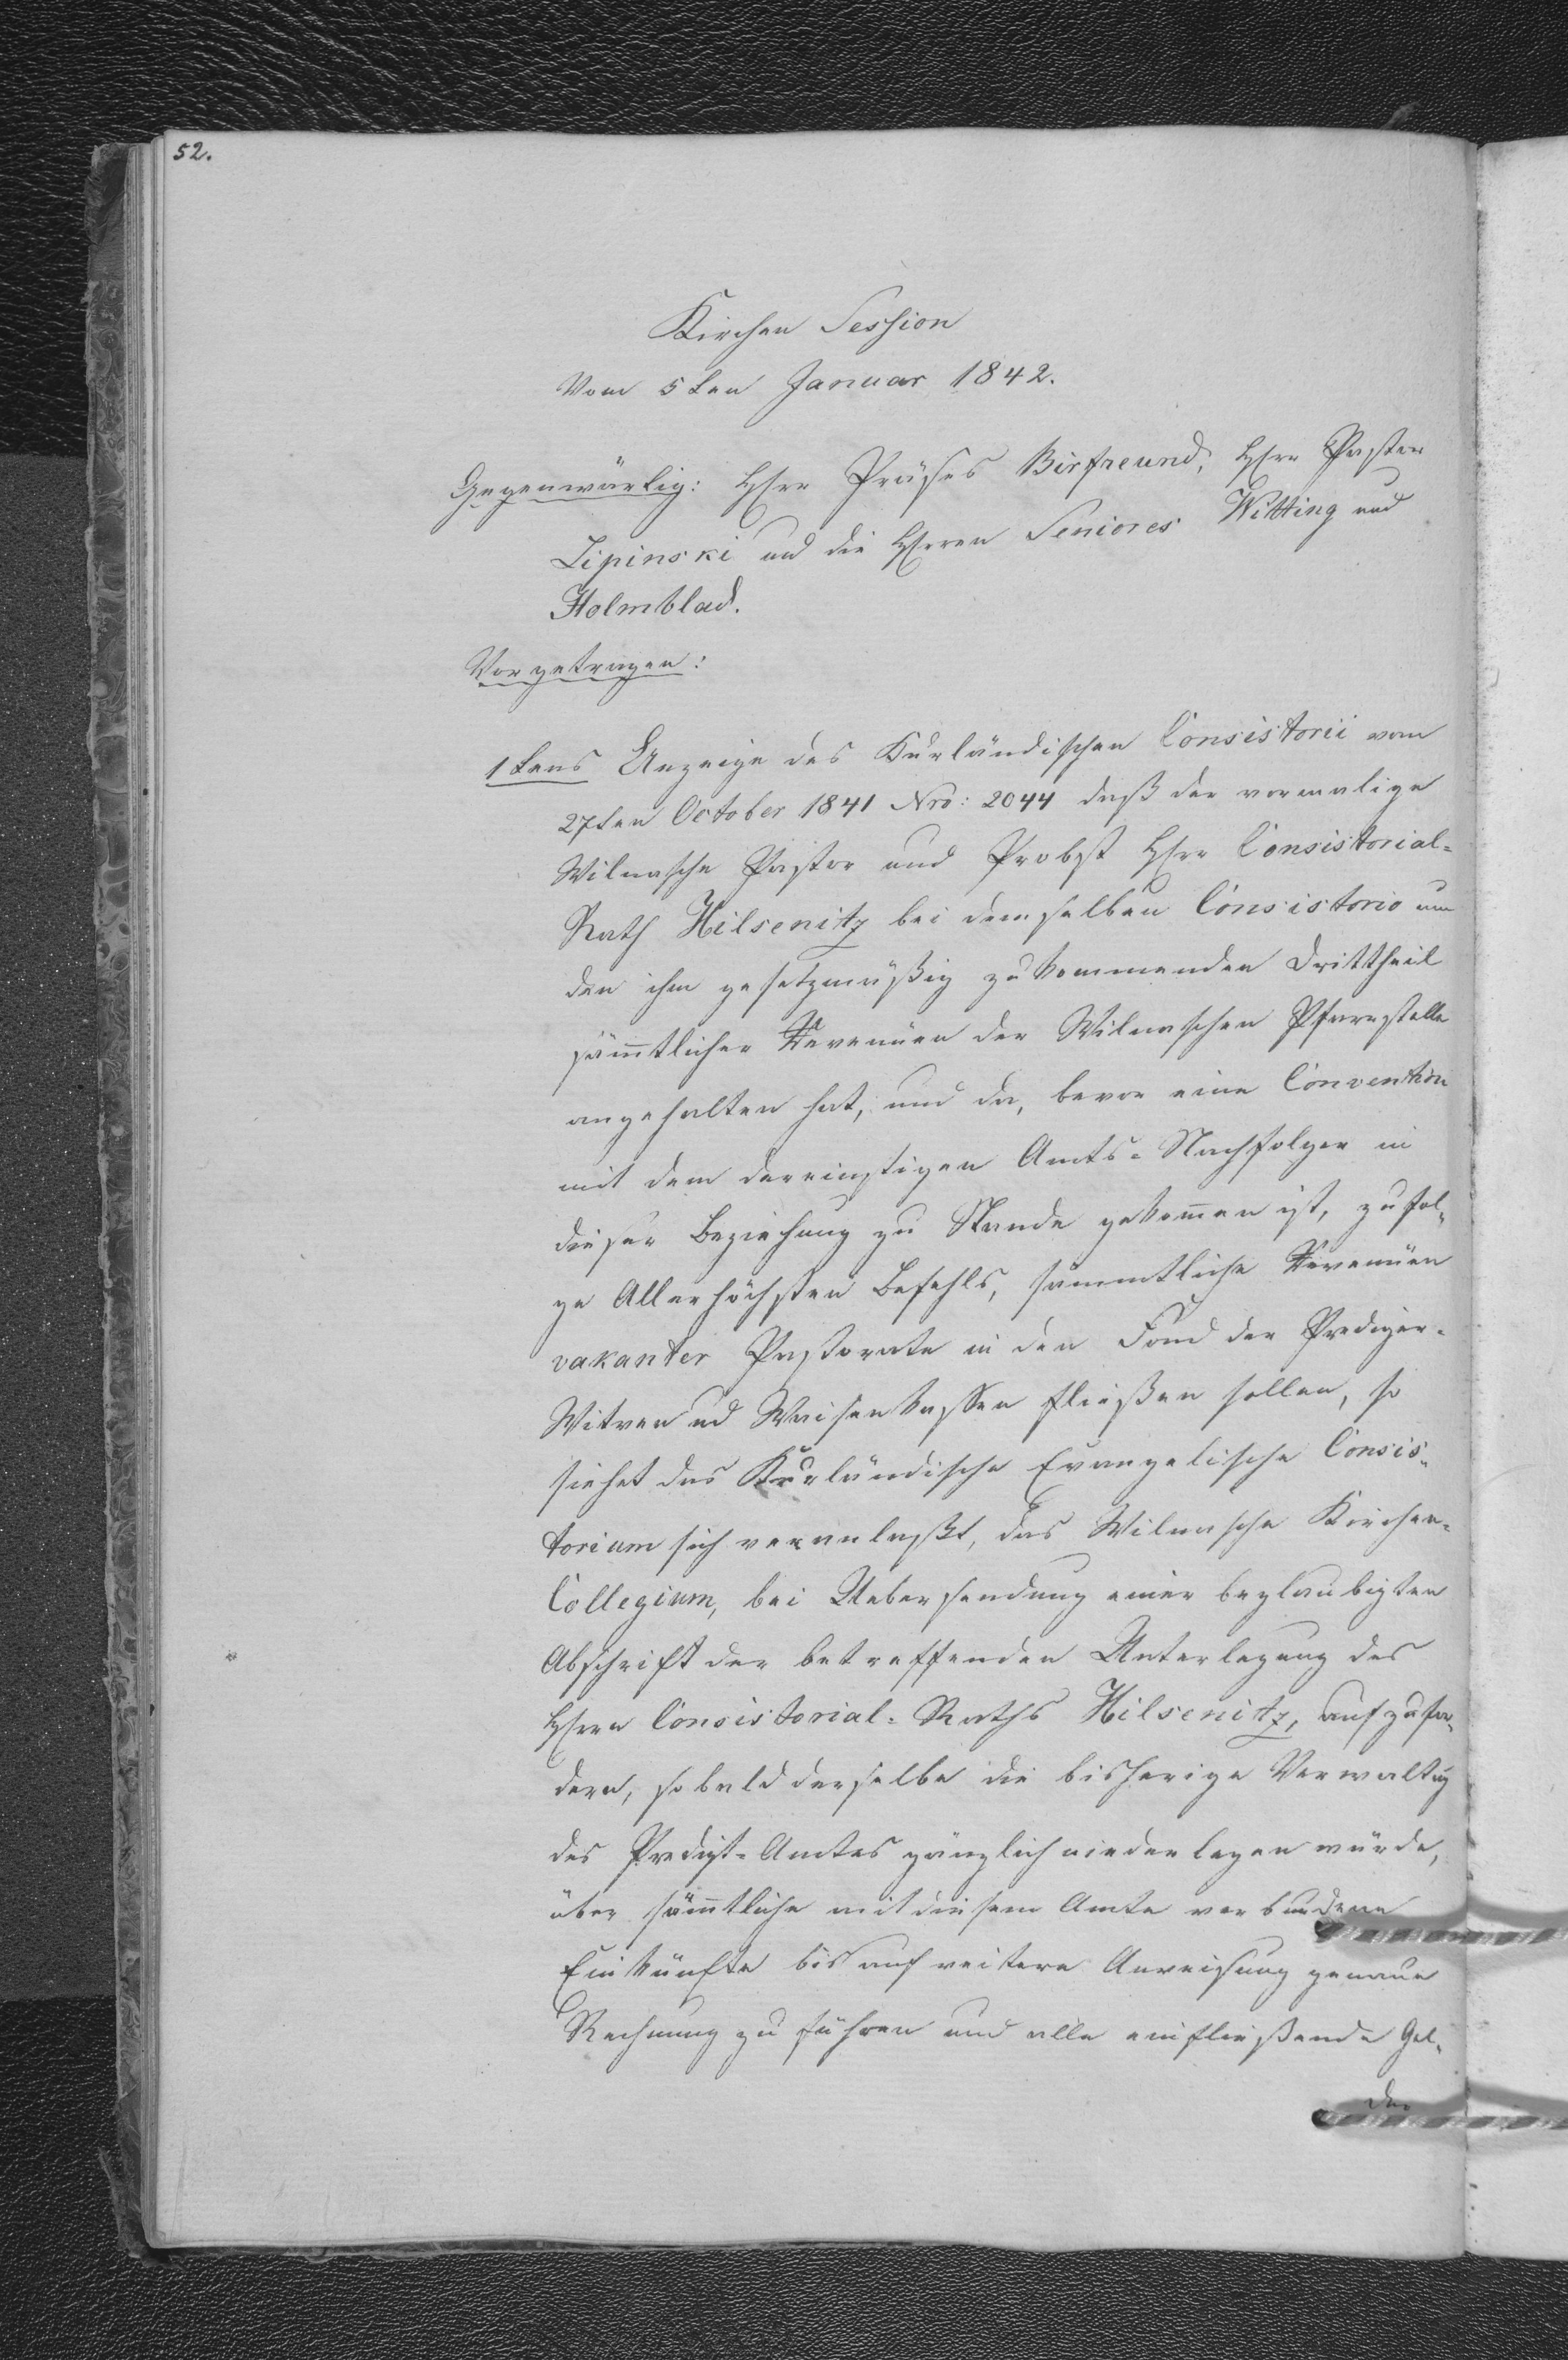 52.
Kirchen Session
Vom 5ten Januar 1842.
Gegenwärtig: Herr Präses Birfreund, Herr Pastor
Lipinski und die Herren Seniores Witting und
Holmblad.
Vorgetragen:
1tens Anzeige des Kurländischen Consistorii vom
27ten October 1841 Nro: 2044 daß der vormalige
Wilnasche Pastor und Probst Herr Consistorial-
Rath Hilsenitz bei demselben Consistorio um
den ihm gesetzmäßig zukommenden Drittheil
sämtlicher Revenüen der Wilnaschen Pfarrstelle
angehalten hat, und da, bevor eine Convention
mit dem dereinstigen Amts-Nachfolger in
dieser Beziehung zu Stande gekommen ist, zufol-
ge Allerhöchsten Befehls, sämmtliche Revenüen
vakanter Pastorate in den Fond der Prediger-
Witwen und Waisenkassen fließen sollen, so
siehet das Kurländische Evangelische Consis-
torium sich veranlaßt, das Wilnasche Kirchen-
Collegium, bei Uebersendung einer beglaubigten
Abschrift der betreffenden Unterlegung des
Herrn Consistorial-Raths Hilsenitz, aufzufor-
dern, sobald derselbe die bisherige Verwaltung
des Predigt-Amtes gänzlich niederlegen würde,
über sämtliche mit diesem Amte verbundene
Einkünfte bis auf weitere Anweisung genaue
Rechnung zu führen und alle einfließende Gel-
der